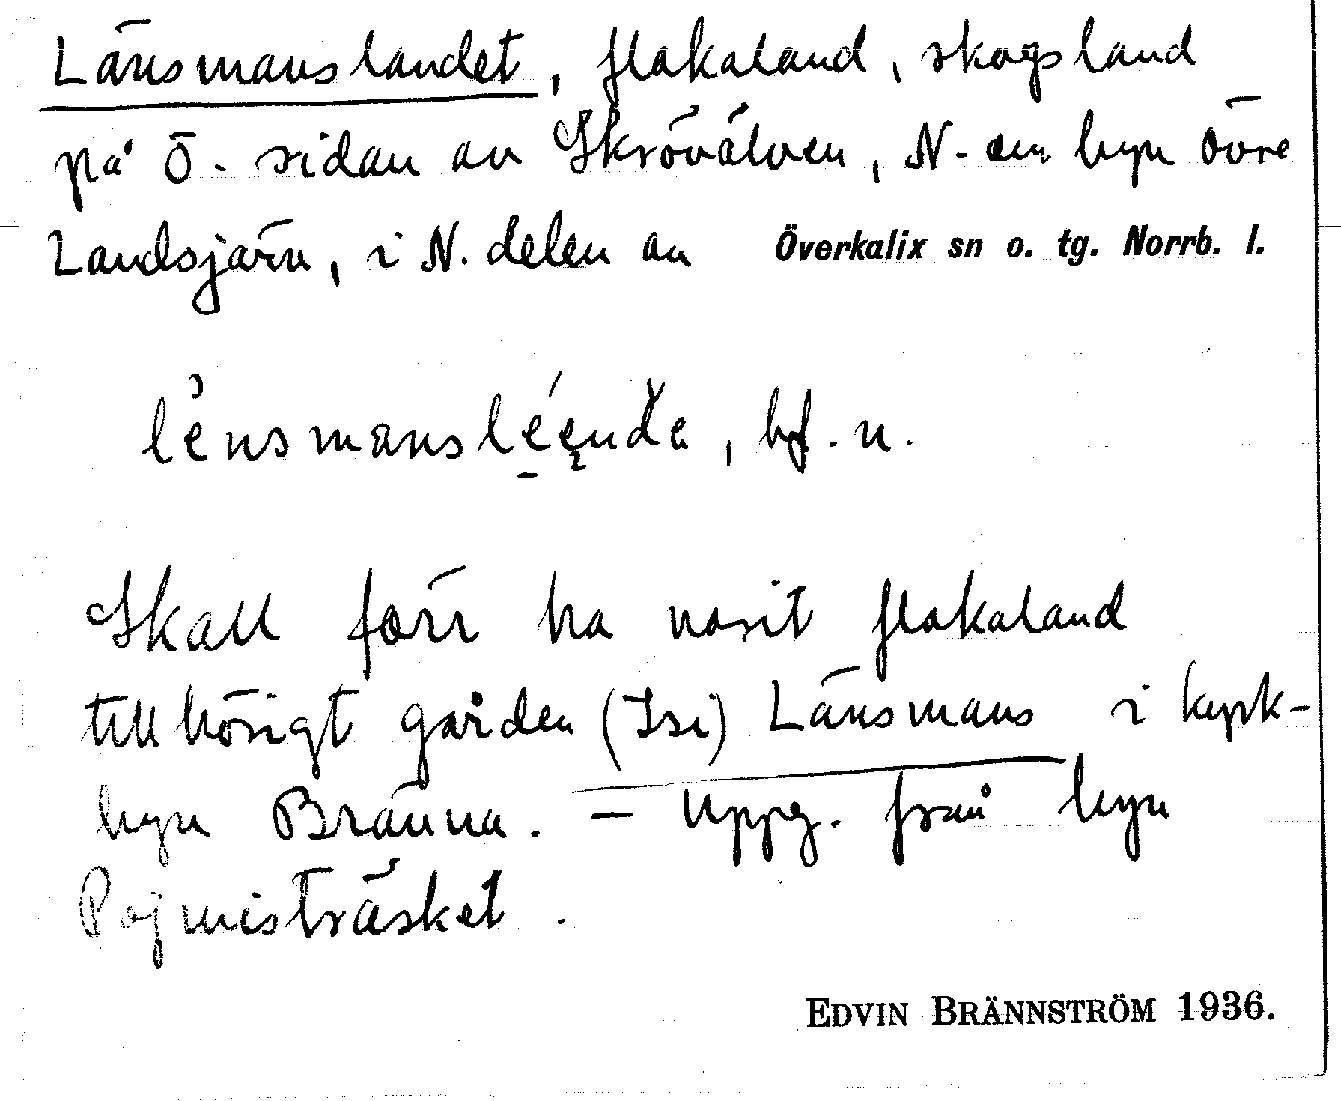 Länsmanslandet, flakaland, skogsland
på Ö. sidan av Skrövälven, N. om byn Övre
Landsjärv, i N. delen av Överkalix sn o. tg. Norrb. l.
bf. n.
Skall förr ha varit flakaland
tillhörigt gården (Isi) Länsmans i kyrk-
byn Bränna. – Uppg. från byn
Pojmisträsket.
EDVIN BRÄNNSTRÖM 1936.